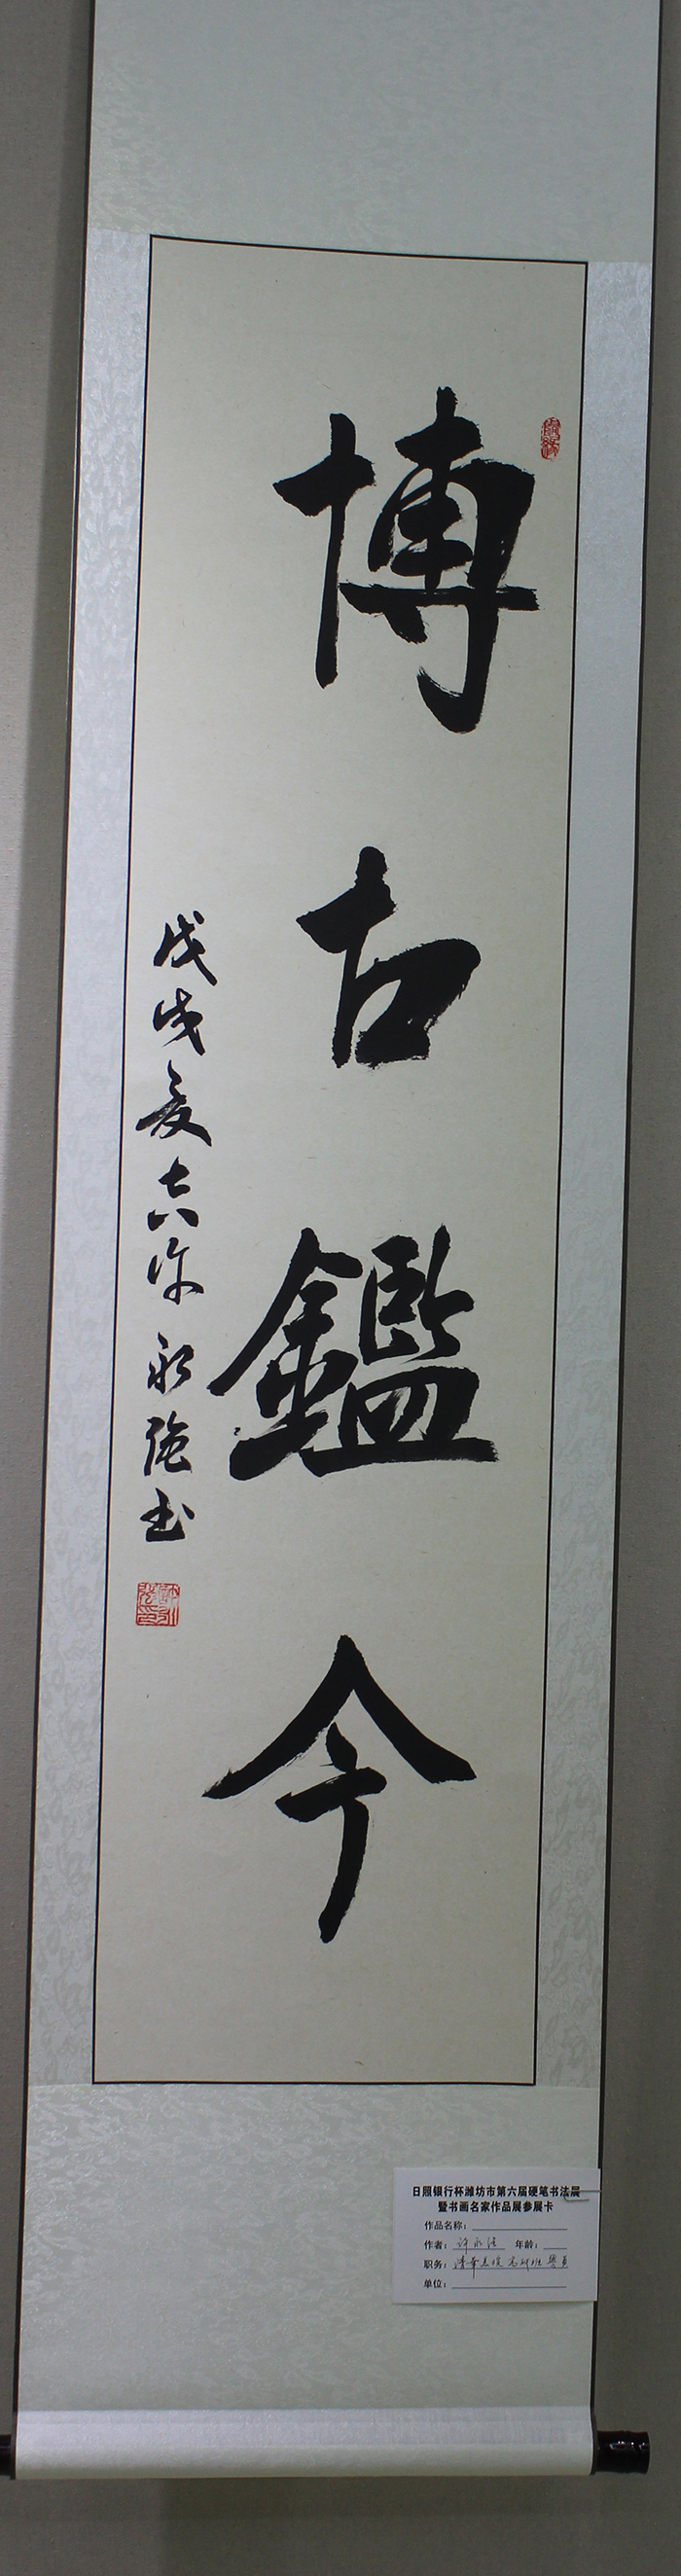 博古鑑今
戊戌夏 许永强书
日照银行杯潍坊市第六届硬笔书法展
暨书画名家作品展参展卡
作品名称：
作者：许永强 年龄：
职务：清華美院高研班學員
单位：